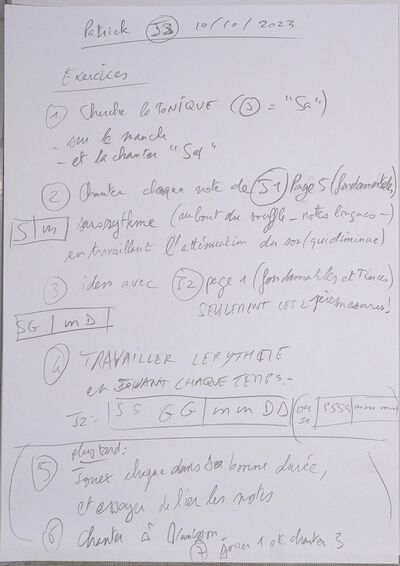 Patrick J3 10/10/2023
Exercices
① Cherche le TONIQUE (S = "Sa")
- sur le manche
- et la chanter "Sa"
② Chanter chaque note de J1 Page 5 (fondamentales)
S | m sans rythme (au bout du souffle - notes longues -)
en travaillant l'atténuation du son (qui diminue)
③ idem avec J2 page 1 (fondamentales et Tierces)
SEULEMENT LES 2 1ères mesures!
SG | m D
④ TRAVAILLER LE RYTHME
en JOUANT CHAQUE TEMPS -
J2 = | S S G G | m m D D | (ou J1 | SSSS | mmmm
plus tard:
⑤ Jouer chaque dans sa bonne durée,
et essayer de lier les notes
⑥ Chanter à l'unisson
⑦ Jouer 1 et chanter 3